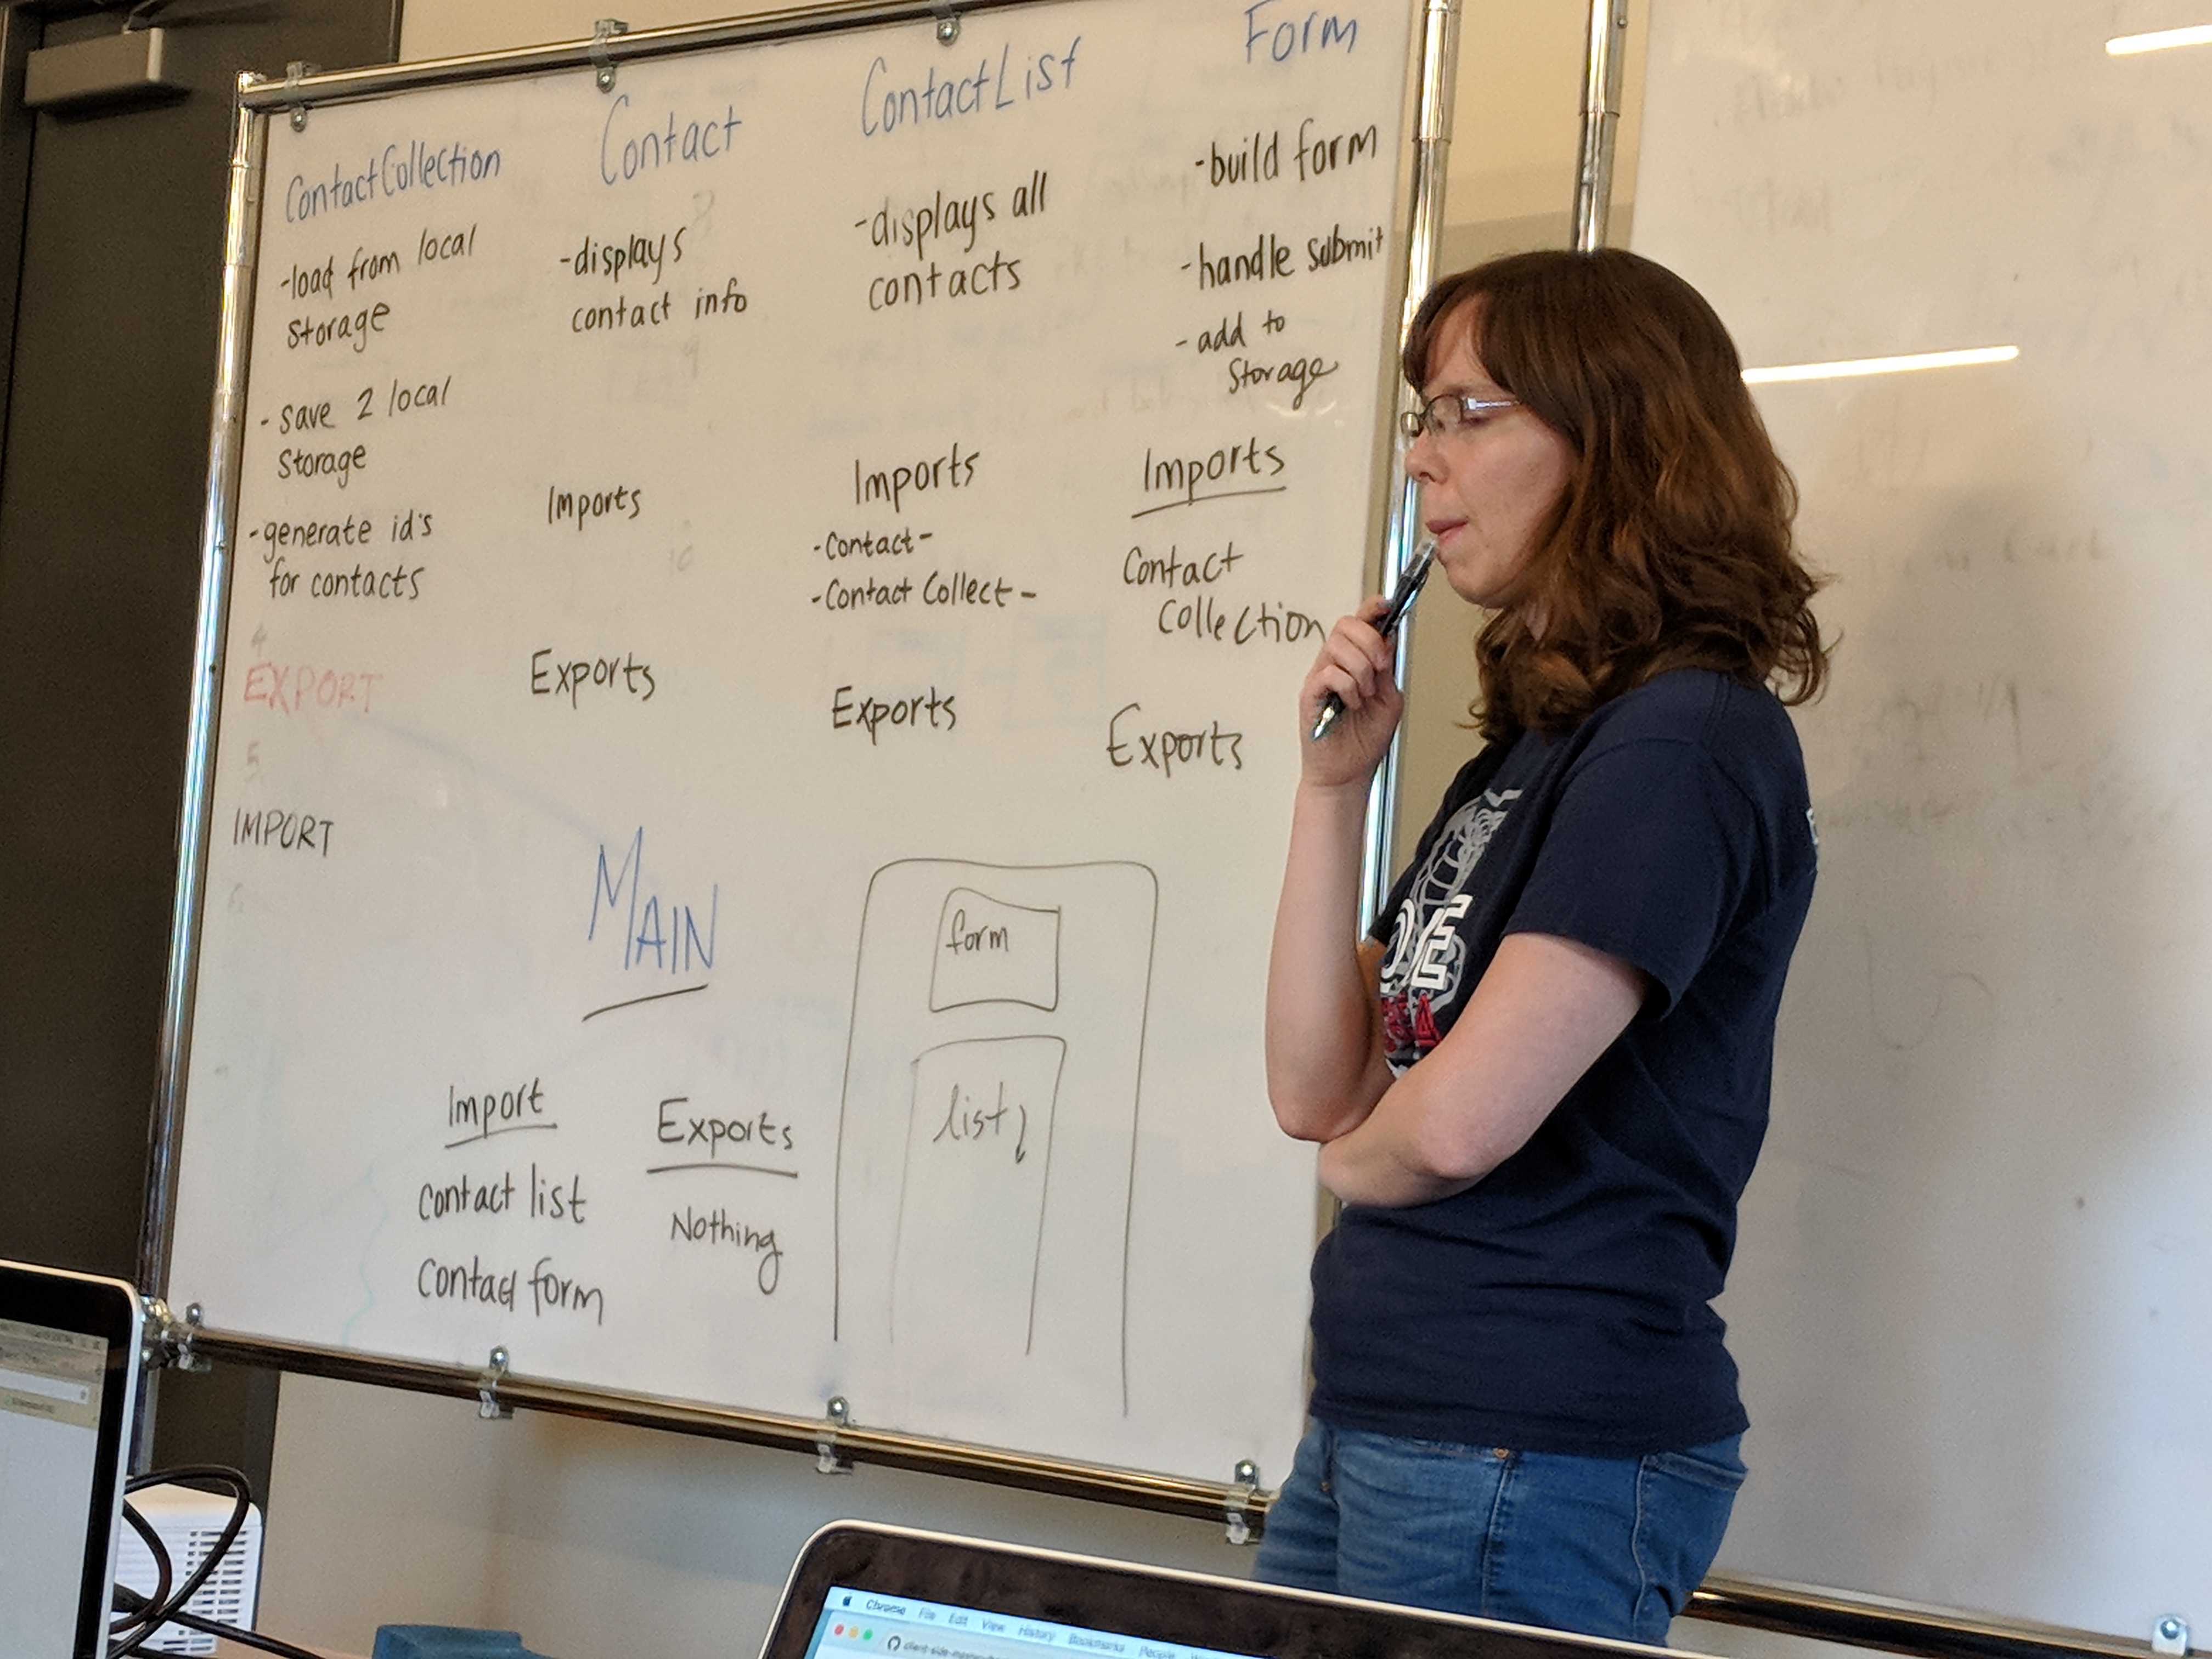 ContactCollection
-load from local
storage
- save 2 local
storage
-generate id's
for contacts
4
EXPORT
5
IMPORT
6
Contact
-displays
contact info
Imports
Exports
ContactList
-displays all
contacts
Imports
-Contact-
-Contact Collect-
Exports
Form
-build form
-handle submit
- add to
storage
Imports
Contact
Collection
Exports
MAIN
Import
contact list
contact form
Exports
Nothing
form
list
Chrome File Edit View History Bookmarks People